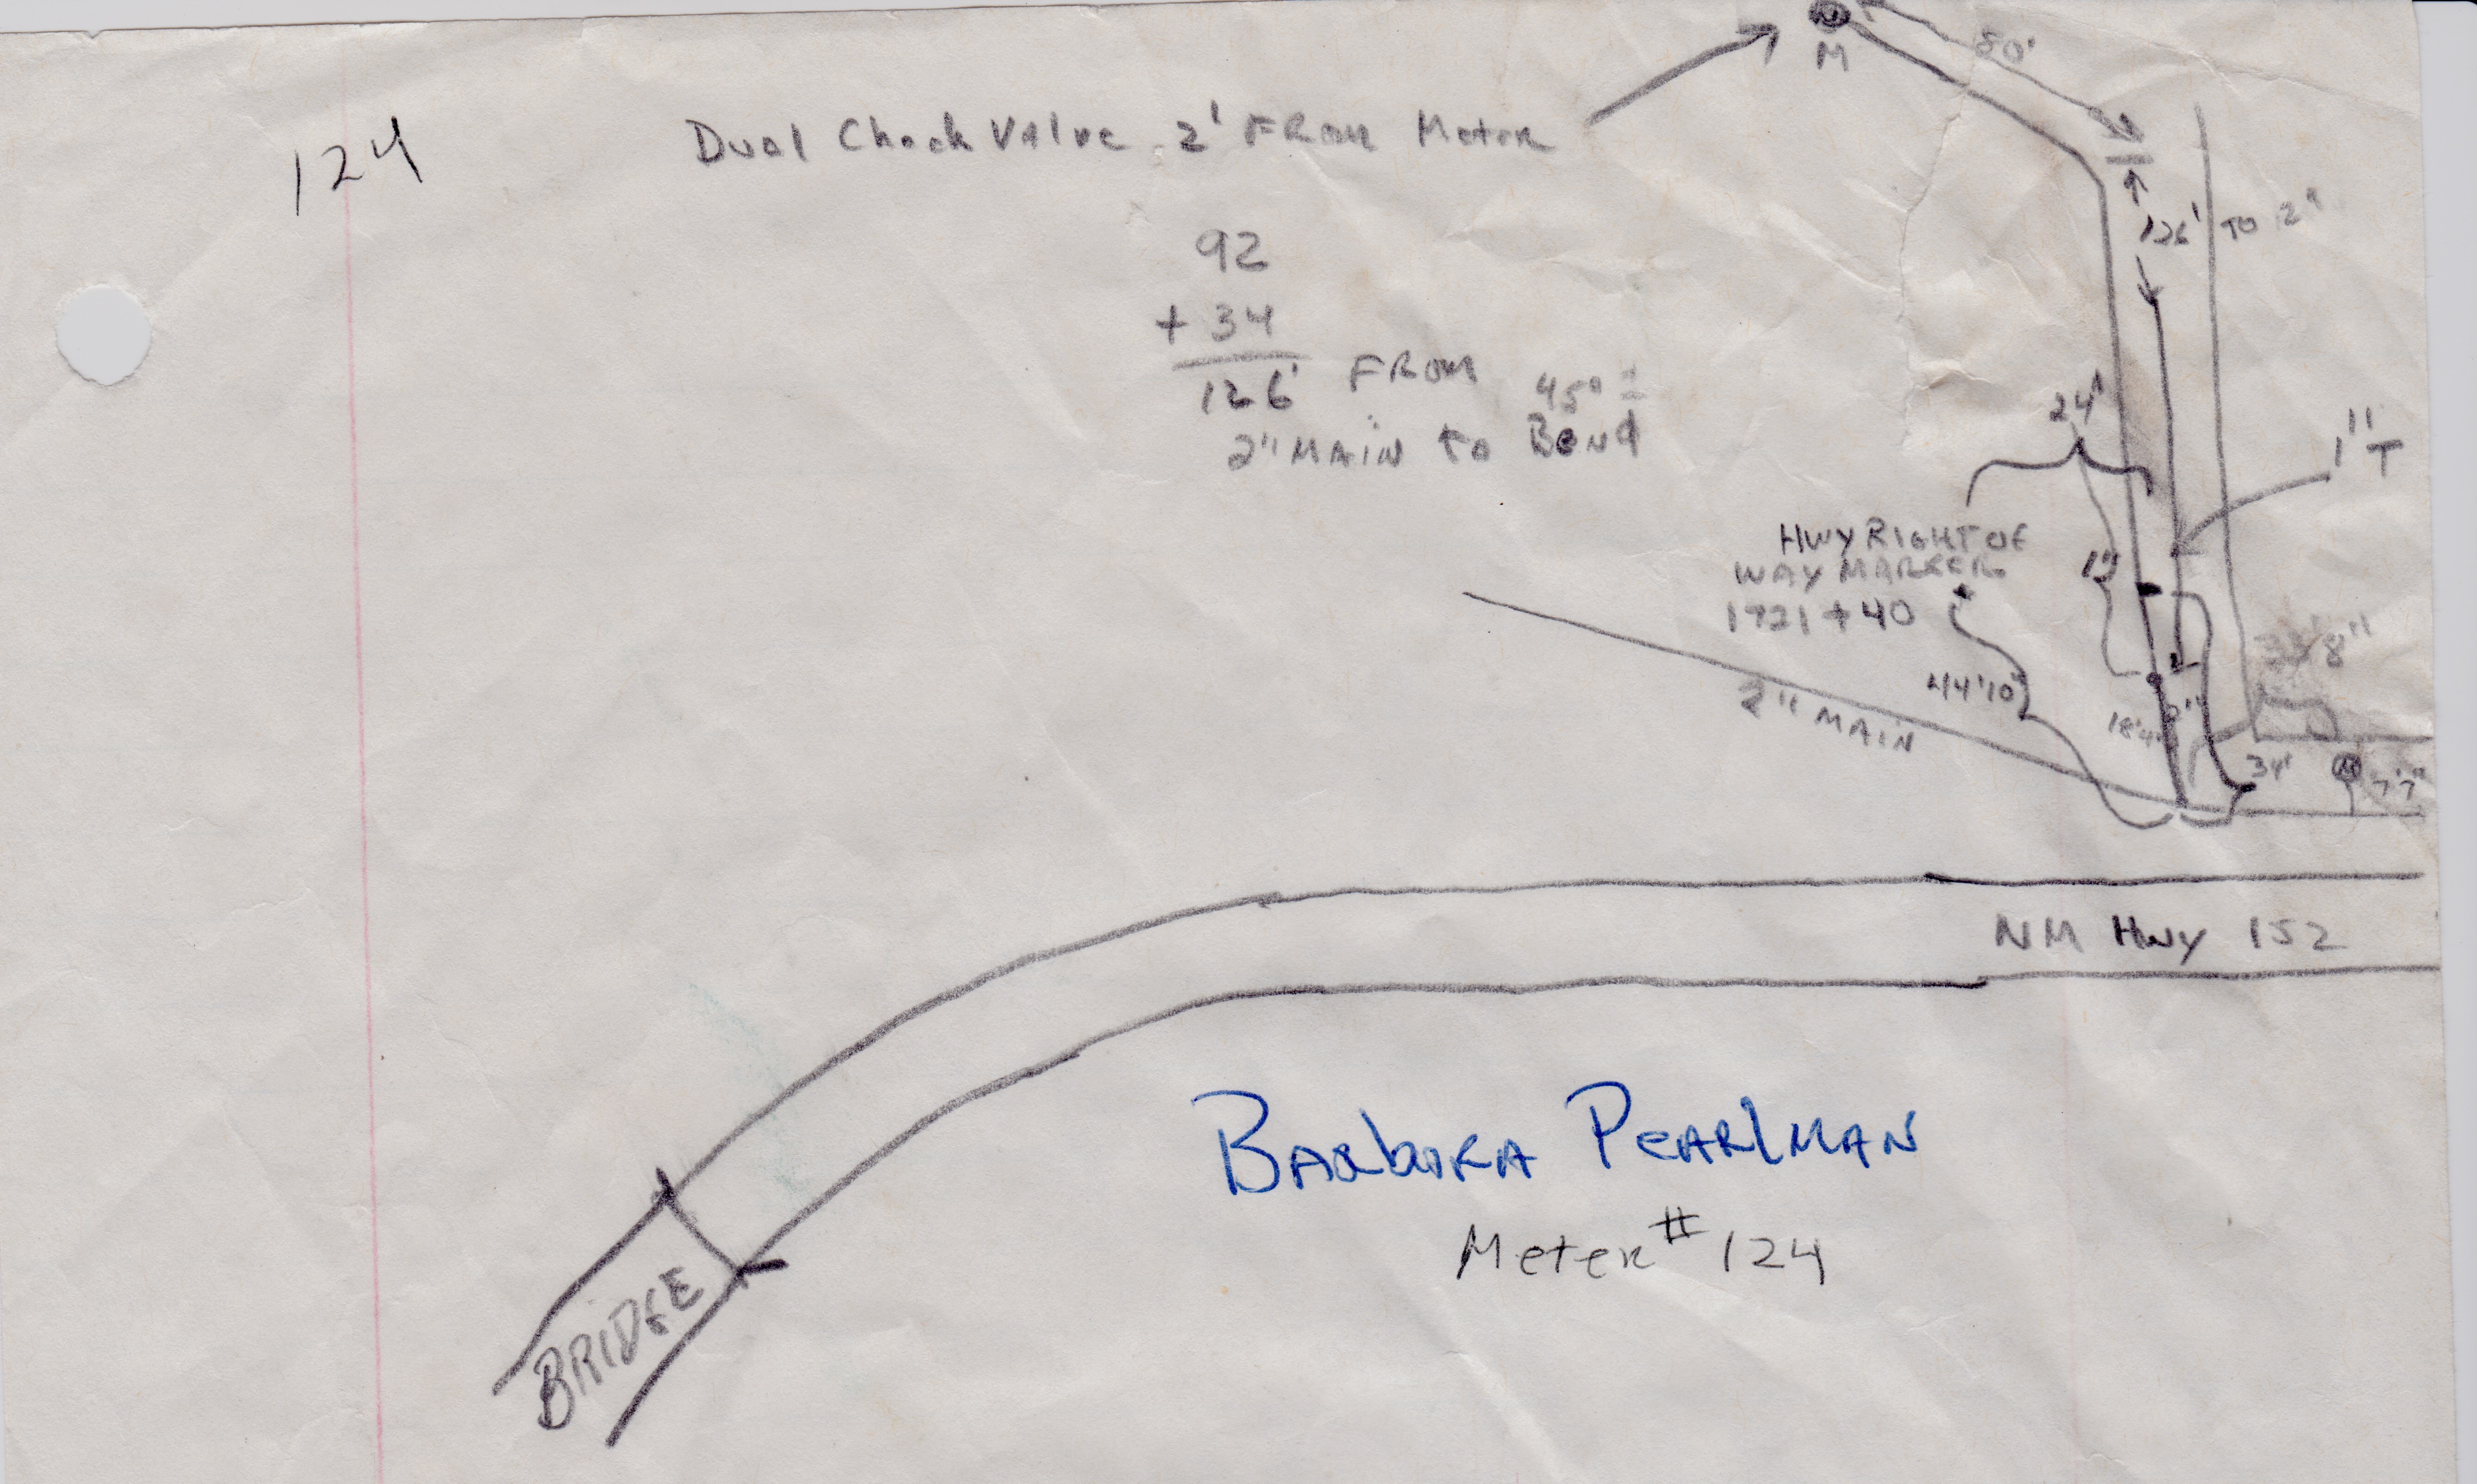 M
80'
124
Dual Check Valve 2' FROM Meter
126' TO 2"
92
+ 34
126' FROM
45° ±
2" MAIN to Bend
24'
1" T
HWY RIGHT OF
WAY MARKER
1721 + 40
1"
8"
44'10"
2" MAIN
18'4"
2"
34'
M
7'7"
NM Hwy 152
BARbARA PEARlMAN
Meter # 124
BRIDGE